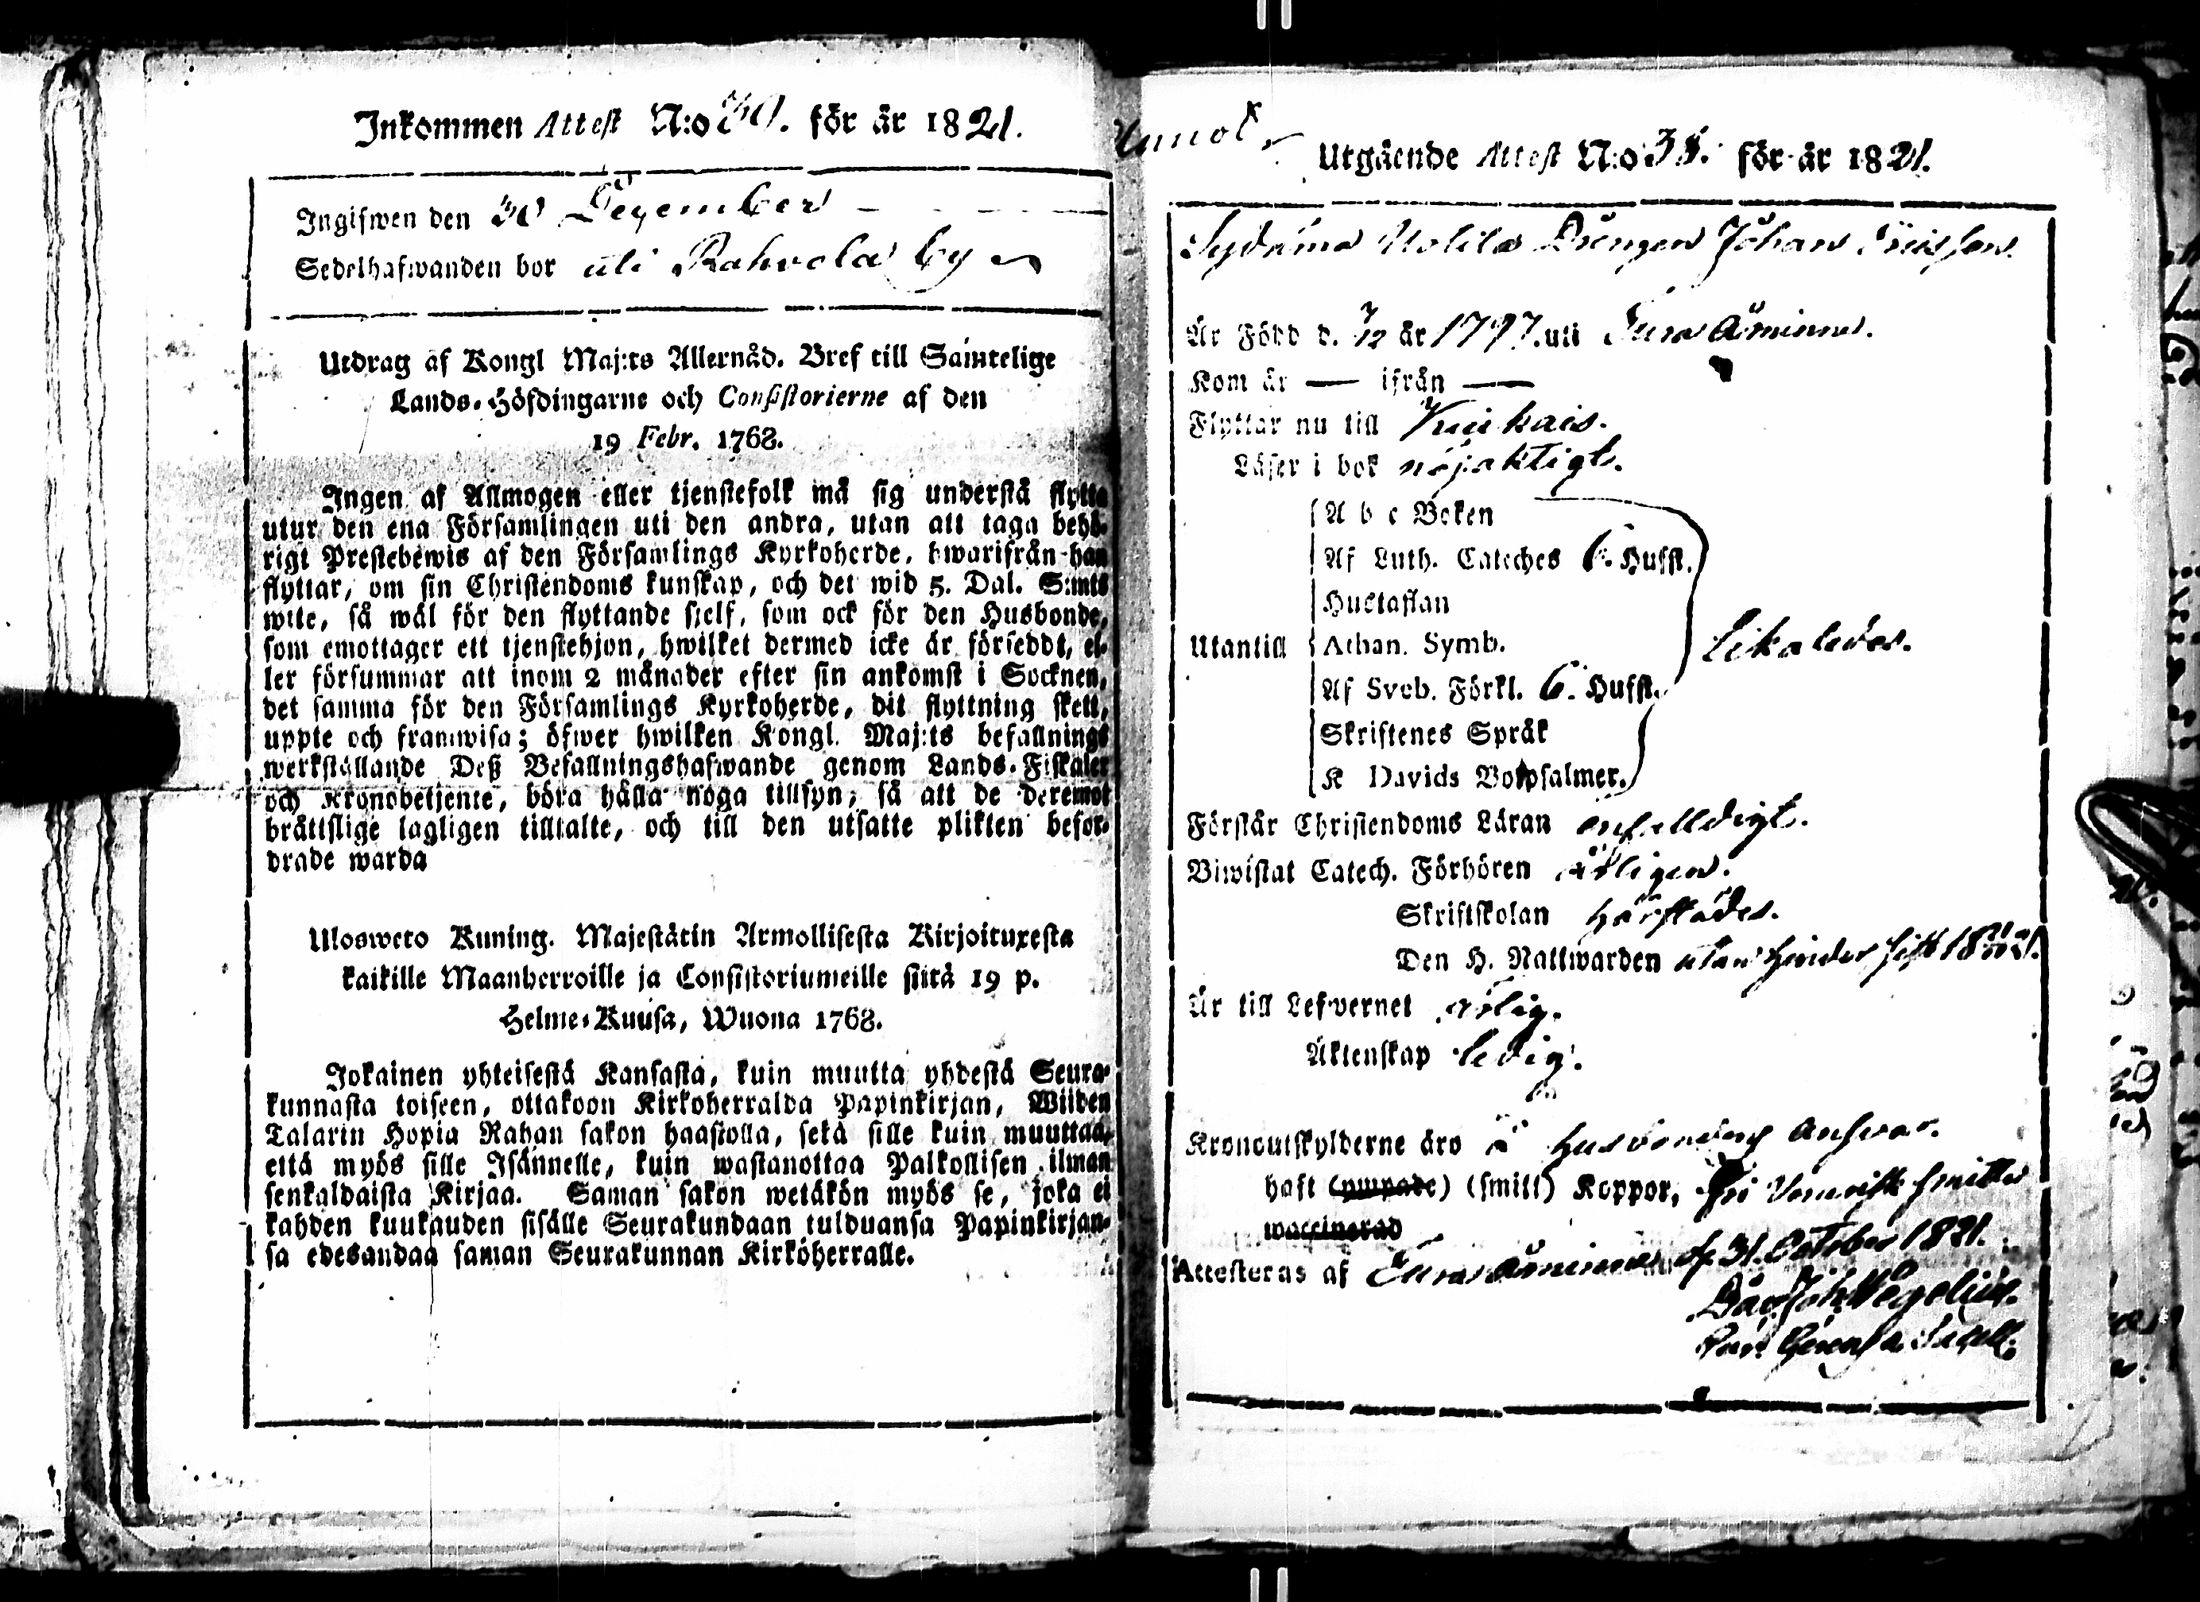 Inkommen Attest N:o 30. för år 1821.
Ingifwen den 30 Decemb​er
Sedelhafwanden bor uti Rahvola by
Utdrag af Kongl Maj:ts Allernåd. Bref till Samtelige
Lands-Höfdingarne och Consistorierne af den
19 Febr. 1768.
Ingen af Allmogen eller tjenstefolk må sig understå flytta
utur den ena Församlingen uti den andra, utan att taga behö-
rigt Prestebewis af den Församlings Kyrkoherde, hwarifrån han
flyttar, om sin Christendoms kunskap, och det wid 5. Dal. S:mts
wite, så wäl för den flyttande sjelf, som ock för den Husbonde,
som emottager ett tjenstehjon, hwilket dermed icke är försedt, el-
ler försummar att inom 2 månader efter sin ankomst i Socknen,
det samma för den Församlings Kyrkoherde, dit flyttning skett,
uppte och framwisa; öfwer hwilken Kongl. Maj:ts befallnings
werkställande Deß Befallningshafwande genom Lands-Fiskaler
och Kronobetjente, böra hålla noga tillsyn, så att de deremot
bråttslige lagligen tilltalte, och till den utsatte plikten befor-
drade warda
Uloswet​o Kuning. Majestätin Armollisesta Kirjoituxesta
kaikille Maanherroille ja Consistoriumeille siitä 19 p.
Helme-Kuusa, Wuona 1768.
Jokainen yhteisestä Kansasta, kuin muutta yhdestä Seura-
kunnasta toiseen, ottakoon Kirkoherralda Papinkirjan, Wiiden
Talarin Hopia Rahan sakon haastolla, sekä sille kuin muuttaa,
että myös sille Isännelle, kuin wastanottaa Palkollisen ilman
senkaldaista Kirjaa. Saman sakon wetäkön myös se, joka ei
kahden kuukauden sisälle Seurakundaan tulduansa Papinkirjan-
sa edesandaa saman Seurakunnan Kirkoherralle.
Utgående Attest N:o 38. för år 1821.
Drengen Johan
Är Född d. 7/12 år 1797. uti Eura Åminne.
Kom år — ifrån —
Flyttar nu till
Läser i bok nöjaktigt.
A b c Boken
Af Luth. Cateches 6. Hufst.
Hustaflan
Utantill Athan. Symb. Likaledes.
Af Sveb. Förkl. 6. Hufst.
Skriftenes Språk
K Davids Botpsalmer.
Förstår Christendoms Läran enfalldigt.
Biwistat Catech. Förhören årligen.
Skriftskolan härstädes.
Den H. Nattwarden utan hinder sist 1821.
Är till Lefvernet ärlig.
Äktenskap ledig.
Kronoutskylderne äro å husbondens answar.
haft (ympade) (smitt) Koppor,
waccinerad
Attesteras af Eura Åminne d. 31. October 1821.